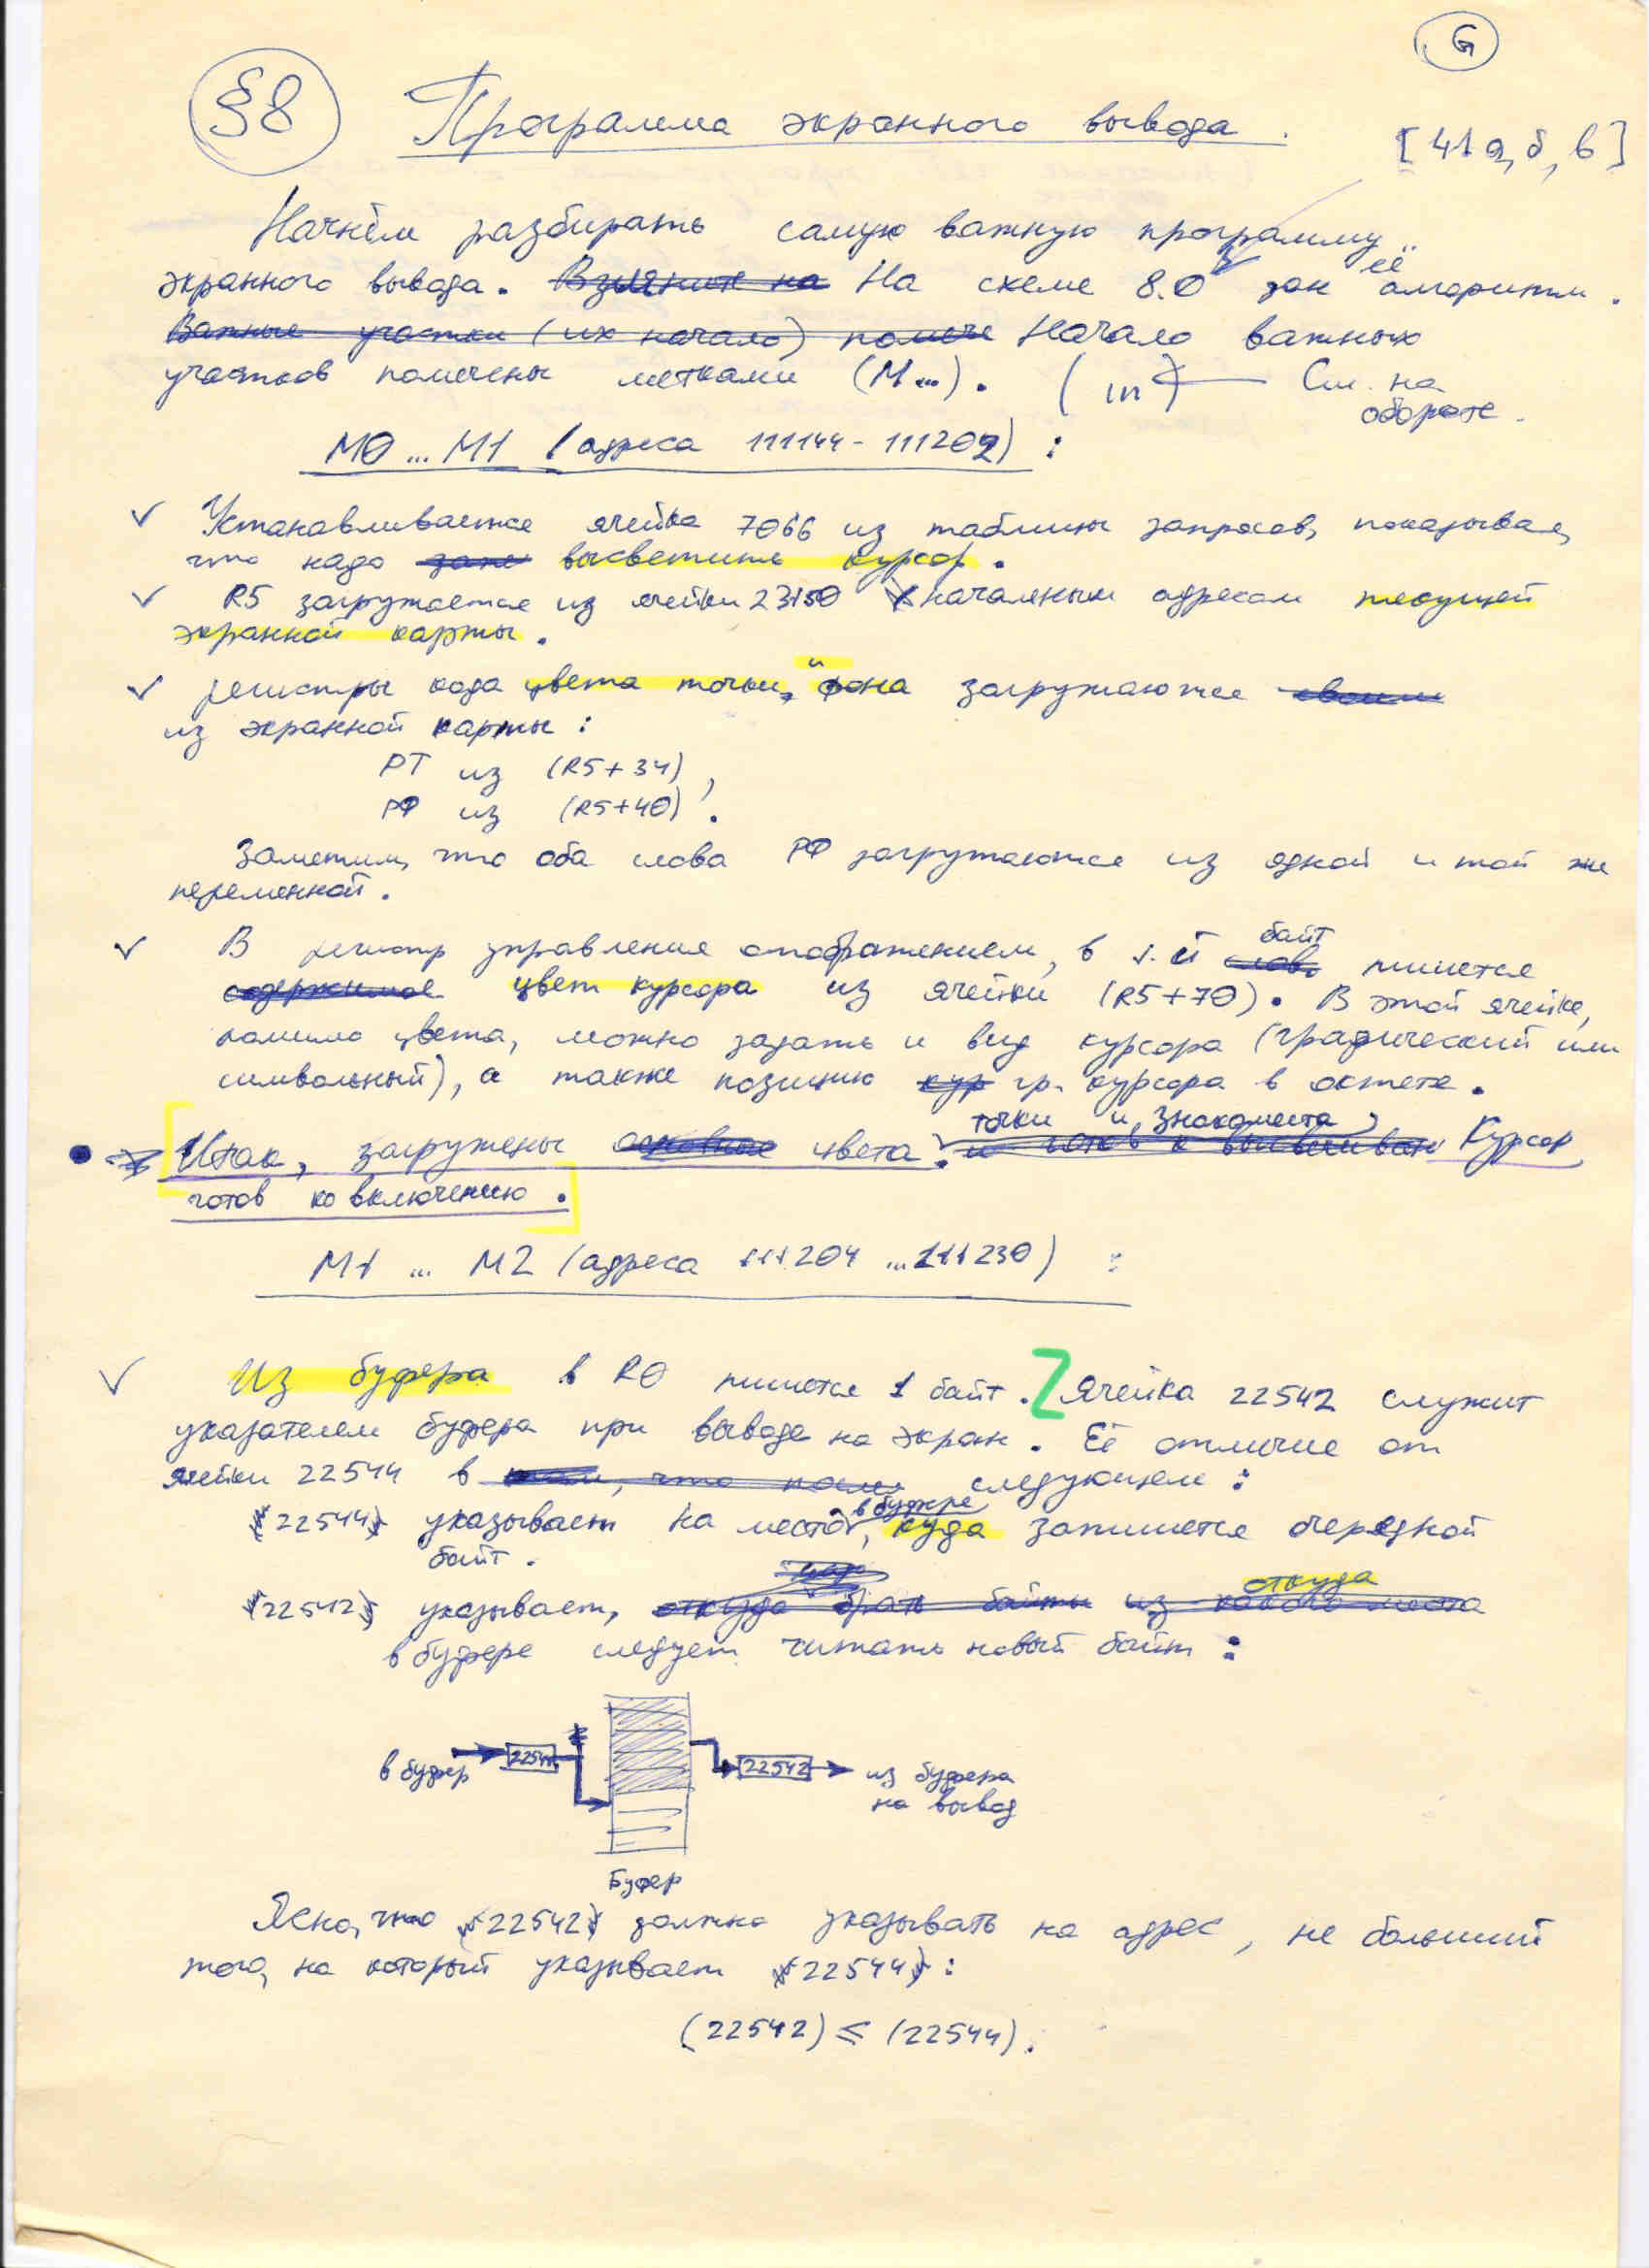 G
§8 Программа экранного вывода.
[41а, б, в]
Начнём разбирать самую важную программу
экранного вывода. Взгляните на На схеме 8.0 дан её алгоритм.
Важные участки (их начало) помече Начало важных
участков помечены метками (М...). (in) См. на
обороте.
М0...М1 (адреса 111144-111202):
✓ Устанавливается ячейка 7066 из таблицы запросов, показывая,
что надо высветить курсор.
✓ R5 загружается из ячейки 23150 начальным адресом текущей
экранной карты.
✓ регистры кода цвета точки, и фона загружаются
из экранной карты:
РТ из (R5+34),
РФ из (R5+40).
Заметим, что оба слова РФ загружаются из одной и той же
переменной.
✓ В регистр управления отображением, в 1-й слово байт пишется
содержимое цвет курсора из ячейки (R5+70). В этой ячейке,
помимо цвета, можно задать и вид курсора (графический или
символьный), а также позицию кур гр. курсора в октете.
Итак, загружены основные цвета точки и знакоместа. Курсор
готов ко включению.
М1 ... М2 (адреса 111204 ...111230) :
✓ Из буфера в R0 пишется 1 байт. Z Ячейка 22542 служит
указателем буфера при выводе на экран. Её отличие от
ячейки 22544 в том, что следующем:
22544 указывает на место в буфере, куда запишется очередной
байт.
22542 указывает, откуда брать байты из какого места откуда
в буфере следует читать новый байт:
в буфер 22544 22542 из буфера
на вывод
Буфер
Ясно, что 22542 должно указывать на адрес, не больший
того, на который указывает 22544:
(22542) ≤ (22544).